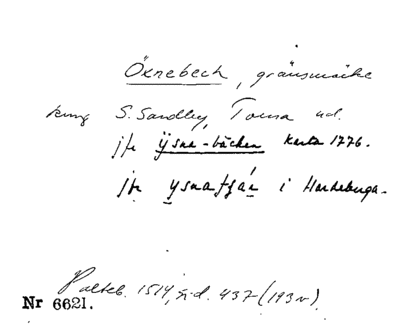 Öxnebech, gränsmärke
kring S. Sandby, Torna hd.
jfr Ysna-bäcken karta 1776.
jfr ysnafjär i Hardeberga.
Palteb. 1514, sid. 437 (193v).
Nr 6621.